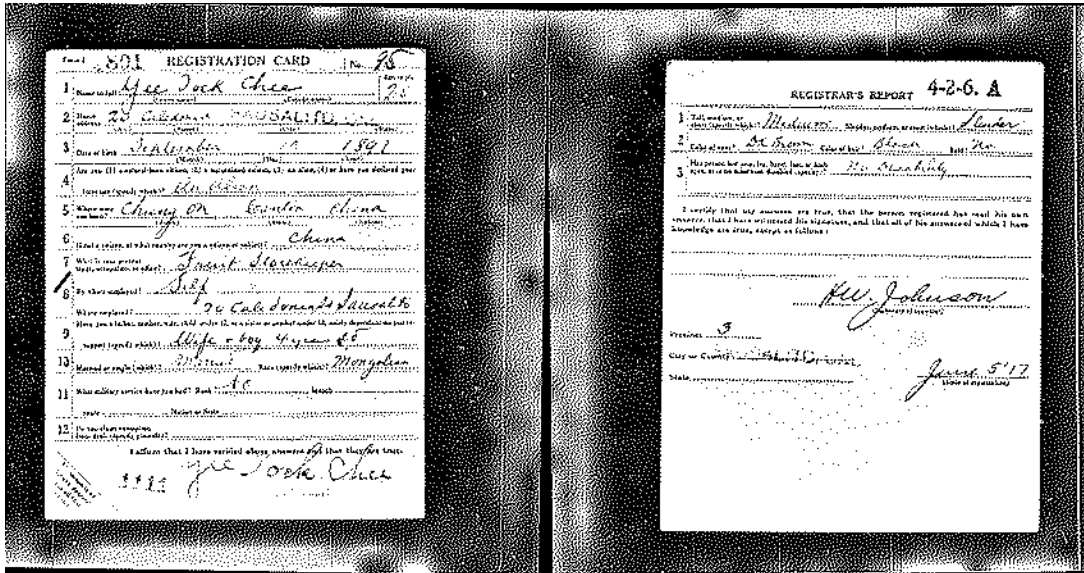 801 REGISTRATION CARD No. 95
1 Name in full Yee Tock Chee Age, in yrs. 25
2 Home address 20 Caledonia SAUSALITO
3 Date of birth September 1892
4 Are you (1) a natural-born citizen, (2) a naturalized citizen, (3) an alien, (4) or have you declared your
intention (specify which)? An Alien
5 Where were you born? Chung On Canton China
6 If not a citizen, of what country are you a citizen or subject? China
7 What is your present trade, occupation, or office? Fruit Storekeeper
8 By whom employed? Self
Where employed? 20 Caledonia St Sausalito
9 Have you a father, mother, wife, child under 12, or a sister or brother under 12, solely dependent on you for
support (specify which)? Wife + boy 4 years
10 Married or single (which)? Race (specify which)? Mongolian
11 What military service have you had? Rank No Branch
years Nation or State
12 Do you claim exemption from draft (specify grounds)?
I affirm that I have verified above answers and that they are true.
Yee Tock Chee
REGISTRAR'S REPORT 4-2-6. A
1 Tall, medium, or short (specify which)? Medium Slender, medium, or stout (which)? Slender
2 Color of eyes? Dk Brown Color of hair? Black Bald? No
3 Has person lost arm, leg, hand, foot, or both eyes, or is he otherwise disabled (specify)? No Disability
I certify that my answers are true, that the person registered has read his own
answers, that I have witnessed his signature, and that all of his answers of which I have
knowledge are true, except as follows:
HW. Johnson
(Signature of registrar)
Precinct 3
City or County
State June 5'17
(Date of registration)